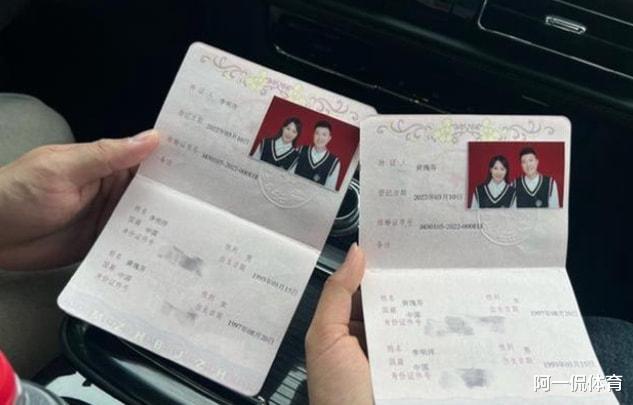 持证人 李明洋
登记日期 2022年03月10日
结婚证字号 J430105-2022-000818
备注
姓名 李明洋 性别 男
国籍 中国 出生日期 1995年01月15日
身份证件号
姓名 性别 女
国籍 中国 出生日期 1997年08月20日
身份证件号
持证人
登记日期 2022年03月10日
结婚证字号 J430105-2022-000818
备注
姓名 性别 女
国籍 中国 出生日期 1997年08月20日
身份证件号
姓名 李明洋 性别 男
国籍 中国 出生日期 1995年01月15日
身份证件号
阿一侃体育